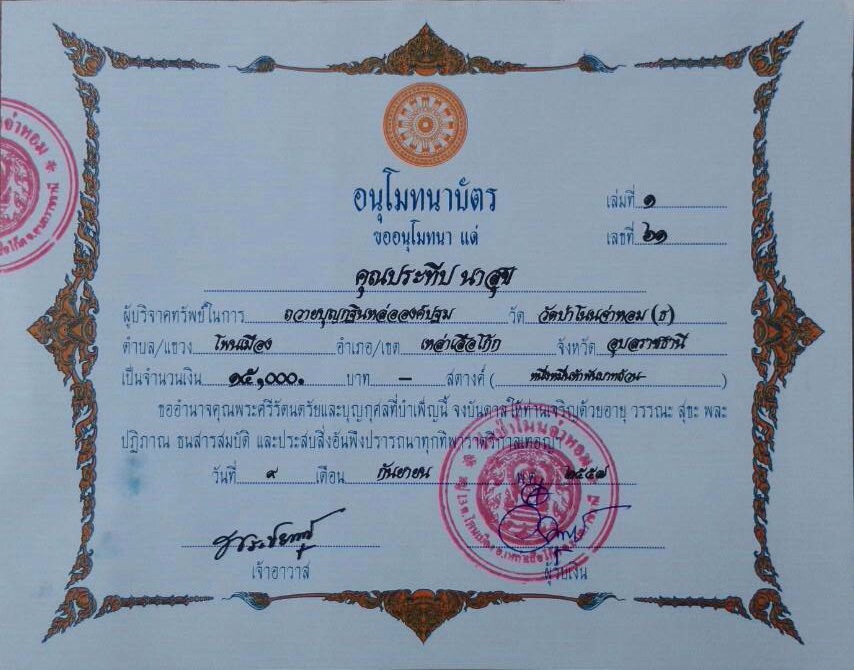 อนุโมทนาบัตร
เล่มที่ ๑
ขออนุโมทนา แด่
เลขที่ ๖๑
คุณประทีป นาสุข
ผู้บริจาคทรัพย์ในการ ถวายบุญกฐินหล่อองค์ปฐม วัด วัดป่าโนนจ่าหอม (ธ)
ตำบล/แขวง โพนเมือง อำเภอ/เขต เหล่าเสือโก้ก จังหวัด อุบลราชธานี
เป็นจำนวนเงิน ๑๕,๐๐๐. บาท – สตางค์ ( หนึ่งหมื่นห้าพันบาทถ้วน )
ขออำนาจคุณพระศรีรัตนตรัยและบุญกุศลที่บำเพ็ญนี้ จงบันดาลให้ท่านเจริญด้วยอายุ วรรณะ สุขะ พละ
ปฏิภาณ ธนสารสมบัติ และประสบสิ่งอันพึงปรารถนาทุกทิพาราตรีกาลเทอญฯ
วันที่ ๙ เดือน กันยายน พ.ศ. ๒๕๕๗
เจ้าอาวาส
ผู้รับเงิน